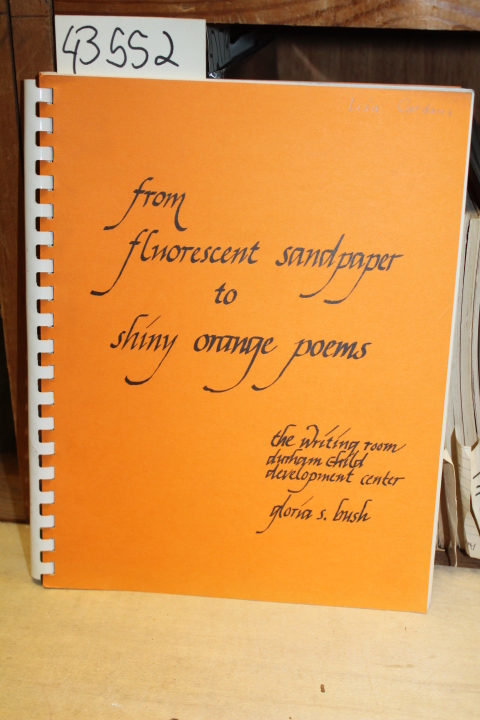 43552
from
fluorescent sandpaper
to
shiny orange poems
the writing room
durham child
development center
gloria s. bush